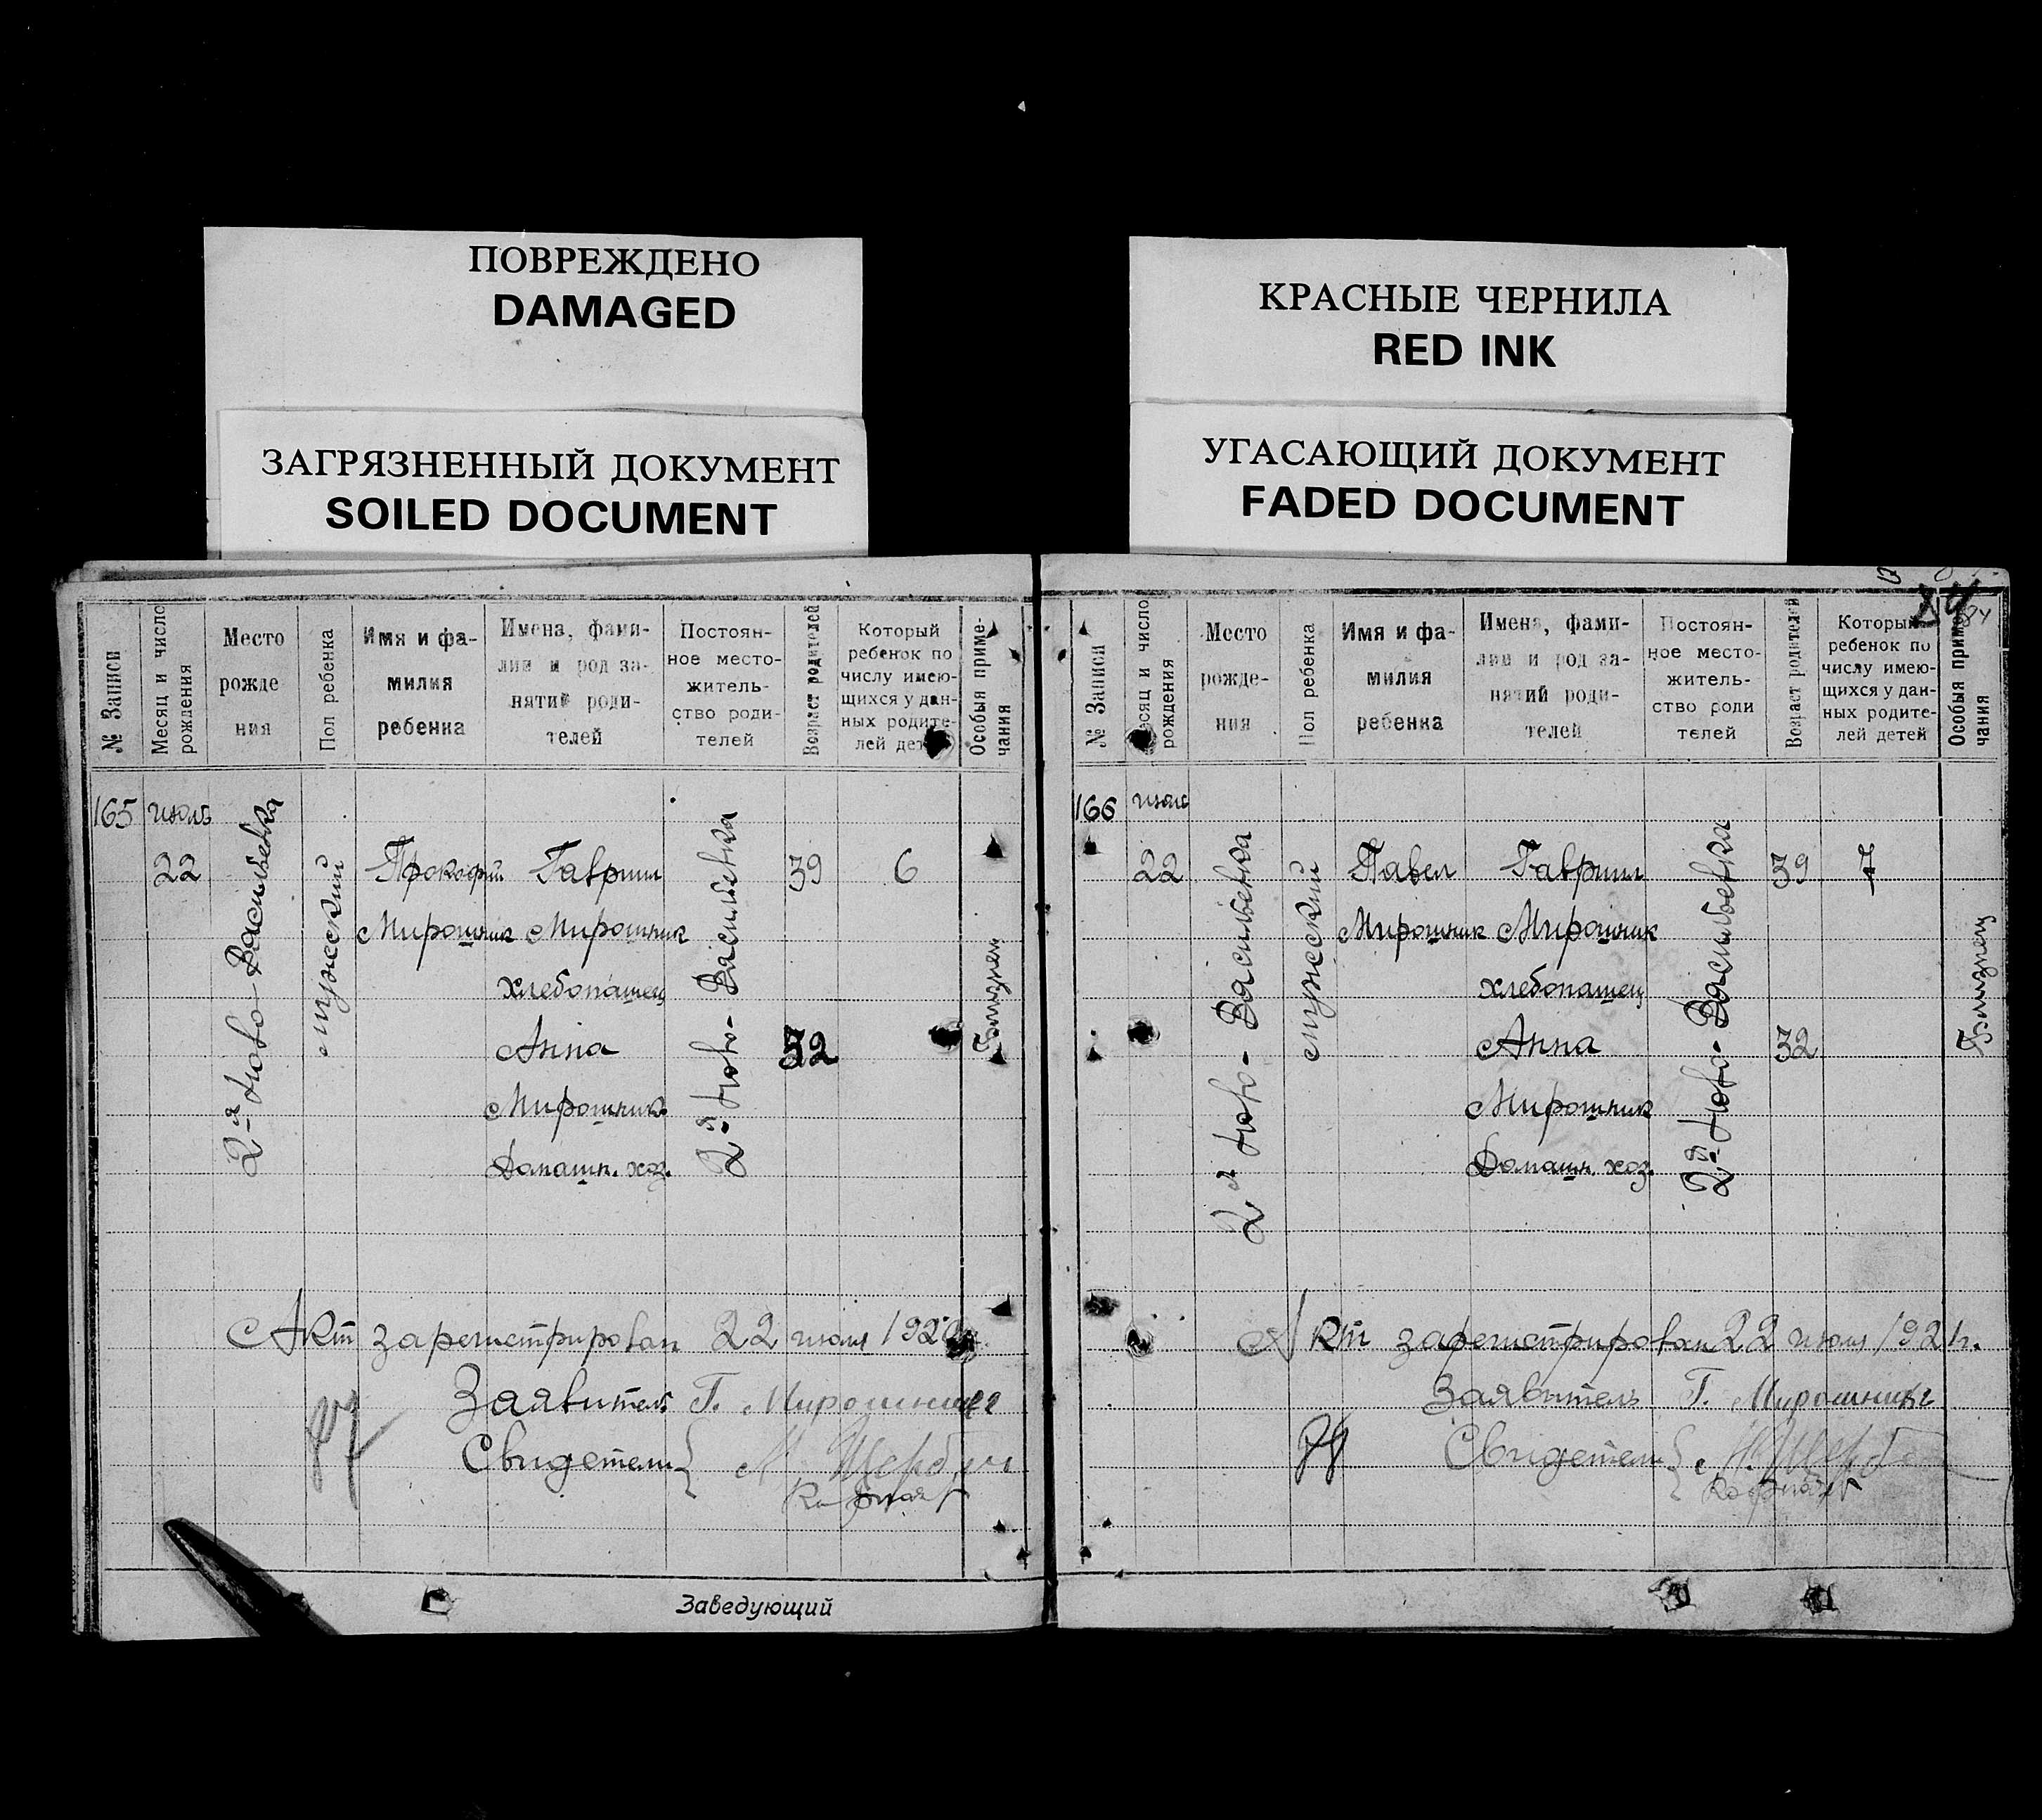 ПОВРЕЖДЕНО
DAMAGED
ЗАГРЯЗНЕННЫЙ ДОКУМЕНТ
SOILED DOCUMENT
КРАСНЫЕ ЧЕРНИЛА
RED INK
УГАСАЮЩИЙ ДОКУМЕНТ
FADED DOCUMENT
№ Записи
Месяц и число
рождения
Место
рожде
ния
Пол ребенка
Имя и фа-
милия
ребенка
Имена, фами-
лии и род за-
нятий роди-
телей
Постоян-
ное место-
житель-
ство роди-
телей
Возраст родителей
Который
ребенок по
числу имею-
щихся у дан-
ных родите-
лей дет
Особыя приме-
чания
165
июль
22
2-я Ново-Васильевка
мужеский
Прокофий
Мирошник
Гавриил
Мирошник
хлебопашец
Анна
Мирошник
Домашн. хоз.
2-я Ново-Васильевка
39
32
6
Близнец
Акт зарегистрирован 22 июля 192
Заявитель Г. Мирошник
Свидетели
Заведующий
№ Записи
Месяц и число
рождения
Место
рожде-
ния
Пол ребенка
Имя и фа-
милия
ребенка
Имена, фами-
лии и род за-
нятий роди-
телей
Постоян-
ное место-
житель-
ство роди
телей
Возраст родителей
Который
ребенок по
числу имею-
щихся у дан-
ных родите-
лей детей
Особыя приме
чания
84
166
июль
22
2я Ново-Васильевка
мужеский
Павел
Мирошник
Гавриил
Мирошник
хлебопашец
Анна
Мирошник
Домашн. хоз.
2-я Ново-Васильевка
39
32
7
Близнец
Акт зарегистрирован 22 июля 192
Заявитель Г. Мирошник
Свидетели